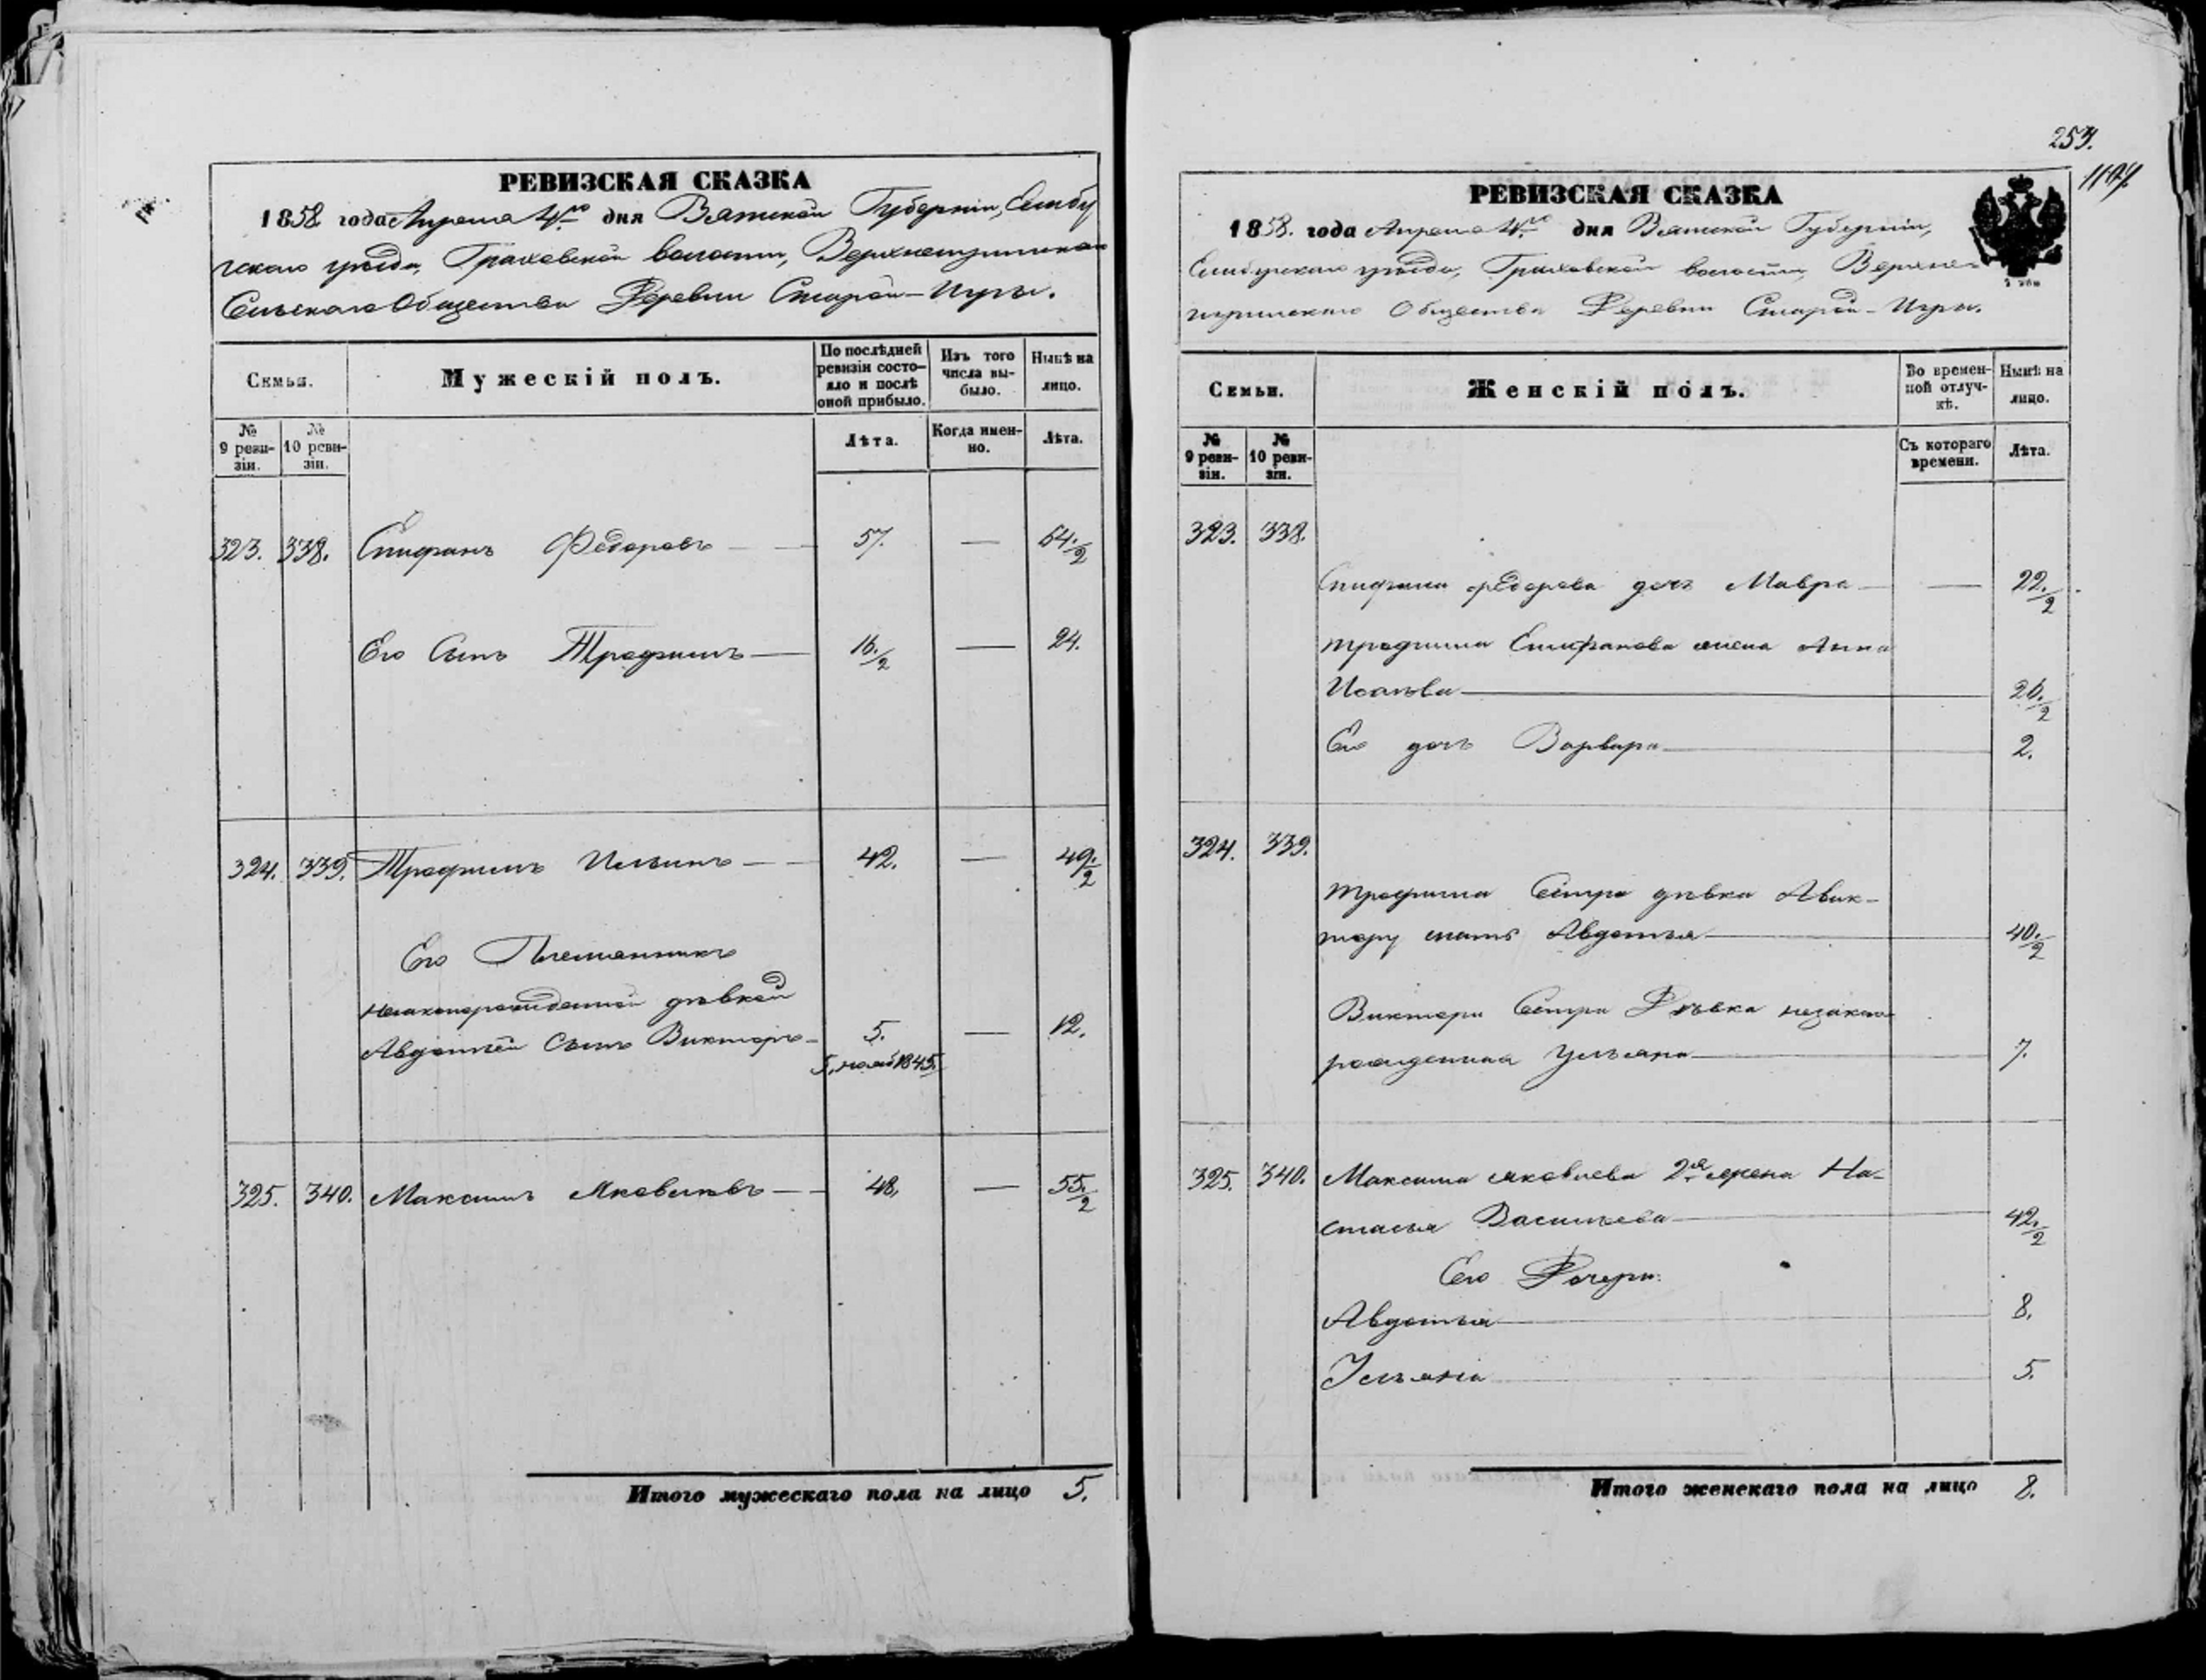 РЕВИЗСКАЯ СКАЗКА
1858 года Апреля 4го дня Вятской Губерніи, Елабу
гскаго уѣзда, Граховской волости, Верхнеигринскаго
Сельскаго Общества Деревни Старой-Игры.
Семьи.
Мужескій полъ.
По послѣдней ревизіи состояло и послѣ оной прибыло.
Изъ того числа выбыло.
Нынѣ на лицо.
№ 9 ревизіи.
№ 10 ревизіи.
Лѣта.
Когда именно.
Лѣта.
323. 338. Епифанъ Федоровъ — 57. — 64./2
Его Сынъ Трофимъ — 16./2 — 24.
324. 339. Трофимъ Ильинъ — 42. — 49./2
Его Племянникъ
незаконорожденной дѣвкой
Авдотьей Сынъ Викторъ — 5. — 12.
325. 340. Максимъ Яковлевъ — 48. — 55./2
Итого мужескаго пола на лицо 5.
253.
РЕВИЗСКАЯ СКАЗКА
1858. года Апреля 4го дня Вятской Губерніи,
Елабугскаго уѣзда, Граховской волости, Верхне-
игринскаго Общества Деревни Старой-Игры.
Семьи.
Женскій полъ.
Во временной отлучкѣ.
Нынѣ на лицо.
№ 9 ревизіи.
№ 10 ревизіи.
Съ котораго времени.
Лѣта.
323. 338.
Епифана Федорова дочь Мавра — 22./2
Трофима Епифанова жена Анна
Исаева — 26./2
Его дочь Варвара — 2.
324. 339.
Трофима Сестра дѣвка Авик-
тору мать Авдотья — 40./2
Виктора Сестра Дѣвка незакон
рожденная Ульяна — 7.
325. 340. Максима Яковлева 2я жена На-
стасья Васильева — 42./2
Его Дочери:
Авдотья — 8.
Ульяна 5.
Итого женскаго пола на лицо 8.